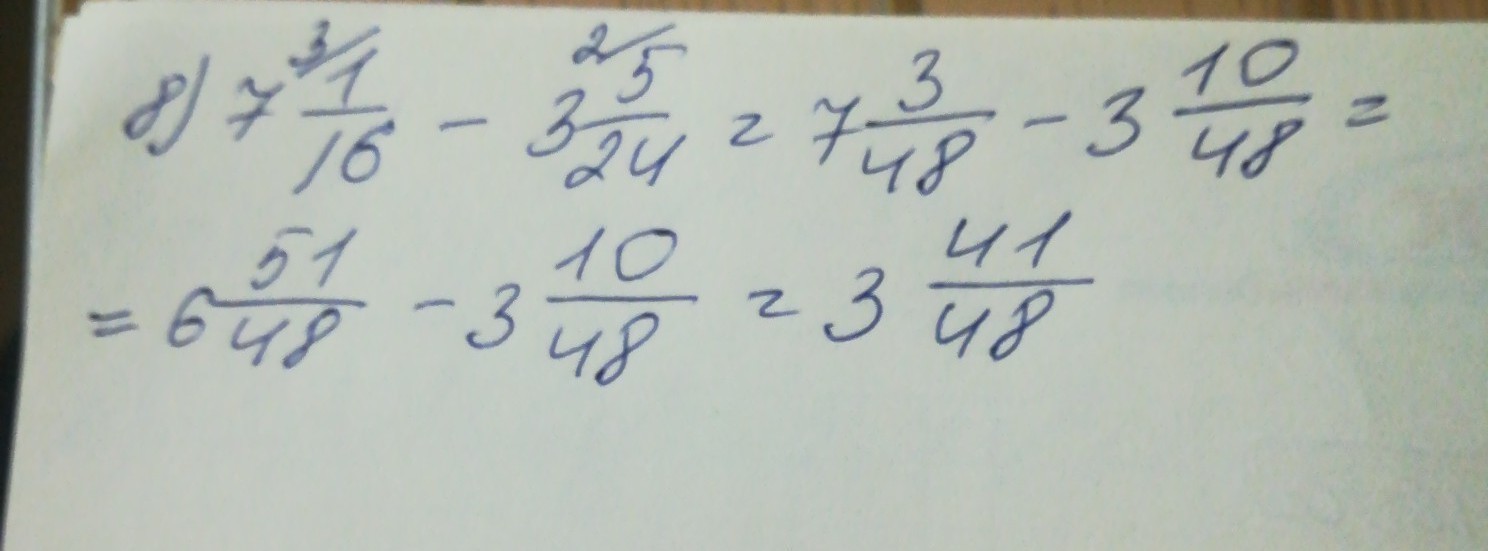 8) 7 3/ 1/16 - 3 2/ 5/24 = 7 3/48 - 3 10/48 =
= 6 51/48 - 3 10/48 = 3 41/48